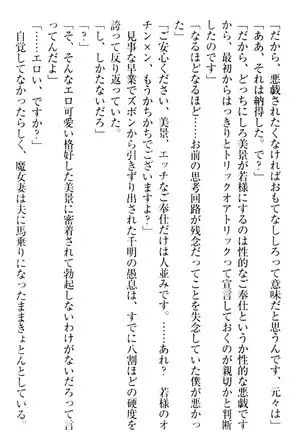 「だから、悪戯されたくなければおもてなししろって意味だと思うんです、元々は」
「ああ、それは納得した。で？」
「だから、どっちにしろ美景が若様にするのは性的なご奉仕か性的な悪戯です
から、最初からはっきりとトリックオアトリックって宣言しておくのが親切かと判断
したのです」
「なるほどなるほど……お前の思考回路が残念だってことを失念していた僕が悪かっ
た」
「ご安心ください、美景、エッチなご奉仕だけは人並みです。……あれ？　若様のオ
チン×ン、もうかちかちでございますよ？」
見事な早業でズボンから引きずり出された千明の愚息は、すでに八割ほどの硬度を
誇って反り返っていた。
「し、しかたないだろ」
「そ、そんなエロ可愛い格好した美景に密着されて勃起しないわけがないだろって言
ってんだよ」
「……エロい、ですか？」
自覚してなかったらしく、魔女妻は夫に馬乗りになったままきょとんとしている。